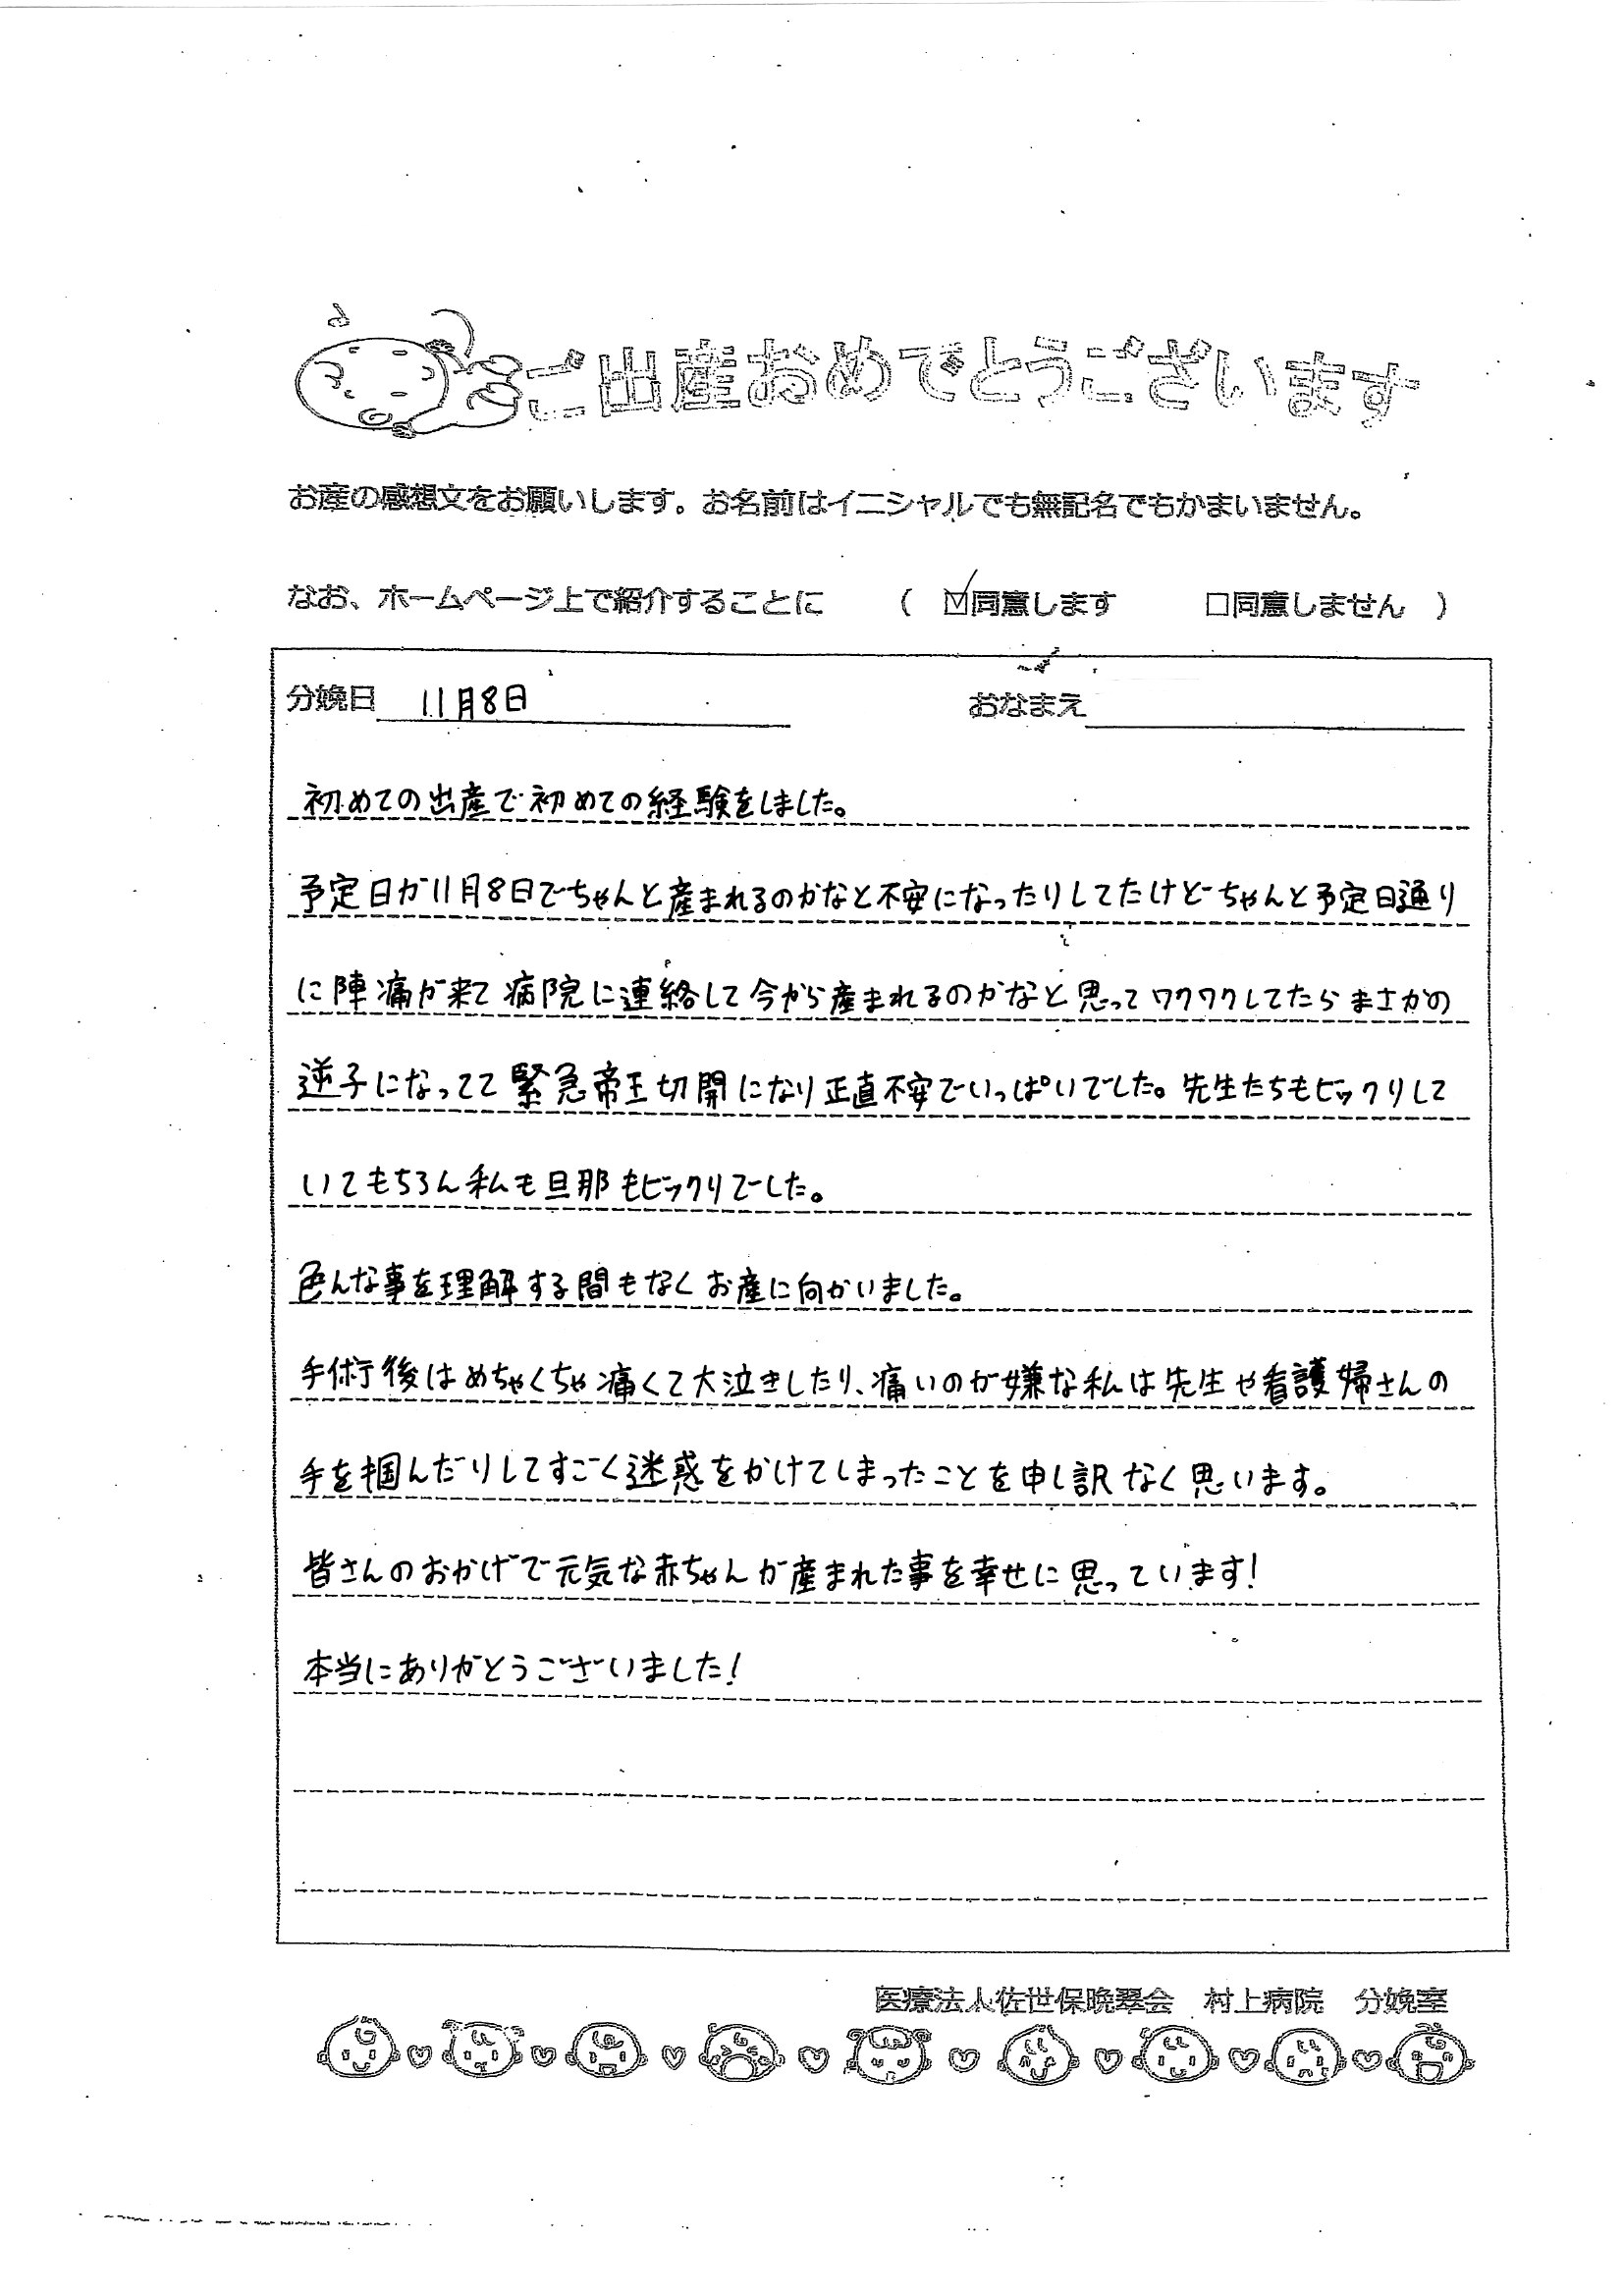 ご出産おめでとうございます
お産の感想文をお願いします。お名前はイニシャルでも無記名でもかまいません。
なお、ホームページ上で紹介することに ( ☑同意します □同意しません )
分娩日 11月8日 おなまえ
初めての出産で初めての経験をしました。
予定日が11月8日でちゃんと産まれるのかなと不安になったりしてたけどちゃんと予定日通り
に陣痛が来て病院に連絡して今から産まれるのかなと思ってワクワクしてたらまさかの
逆子になってて緊急帝王切開になり正直不安でいっぱいでした。先生たちもビックリして
いてもちろん私も旦那もビックリでした。
色んな事を理解する間もなくお産に向かいました。
手術後はめちゃくちゃ痛くて大泣きしたり、痛いのが嫌な私は先生や看護婦さんの
手を掴んだりしてすごく迷惑をかけてしまったことを申し訳なく思います。
皆さんのおかげで元気な赤ちゃんが産まれた事を幸せに思っています!
本当にありがとうございました!
医療法人佐世保晩翠会 村上病院 分娩室